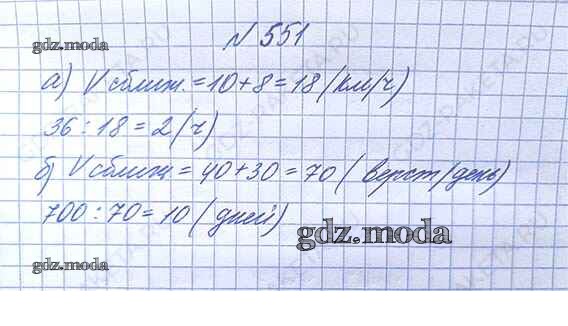 № 551
gdz.moda
а) V сближ. = 10 + 8 = 18 (км/ч)
36 : 18 = 2 (ч)
б) V сближ = 40 + 30 = 70 (верст/день)
700 : 70 = 10 (дней)
gdz.moda
gdz.moda